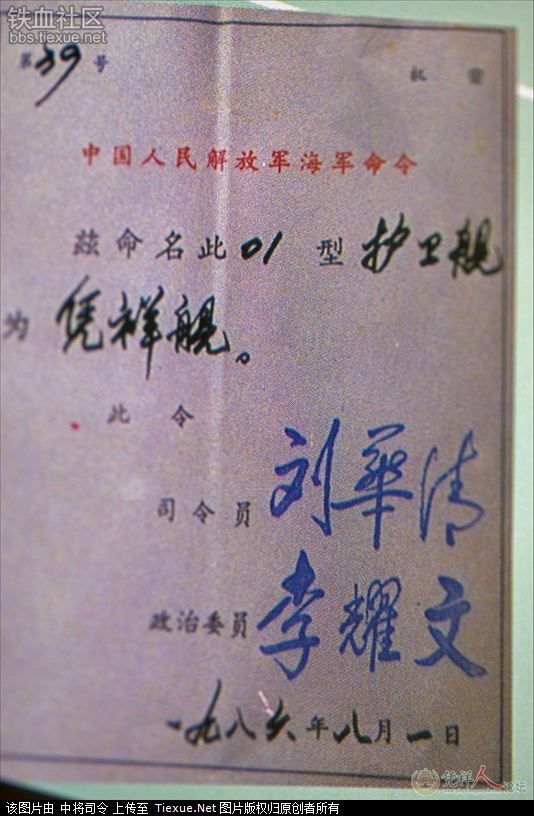 铁血社区
bbs.tiexue.net
第39号
中国人民解放军海军命令
兹命名此01型护卫舰
为凭祥舰。
此令
司令员 刘华清
政治委员 李耀文
一九八六年八月一日
凭祥人论坛
该图片由 中将司令 上传至 Tiexue.Net 图片版权归原创者所有